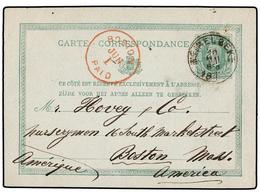 CARTE CORRESPONDANCE
BOSTON
JUN
1
PAID
CE CÔTÉ EST RÉSERVÉ À L'ADRESSE.
ZIJDE VOOR HET ADRES ALLEEN TE GEBRUIKEN.
Mr. Hovey & Co.
Nurserymen 16 South Market street
Boston Mass.
Amerique America